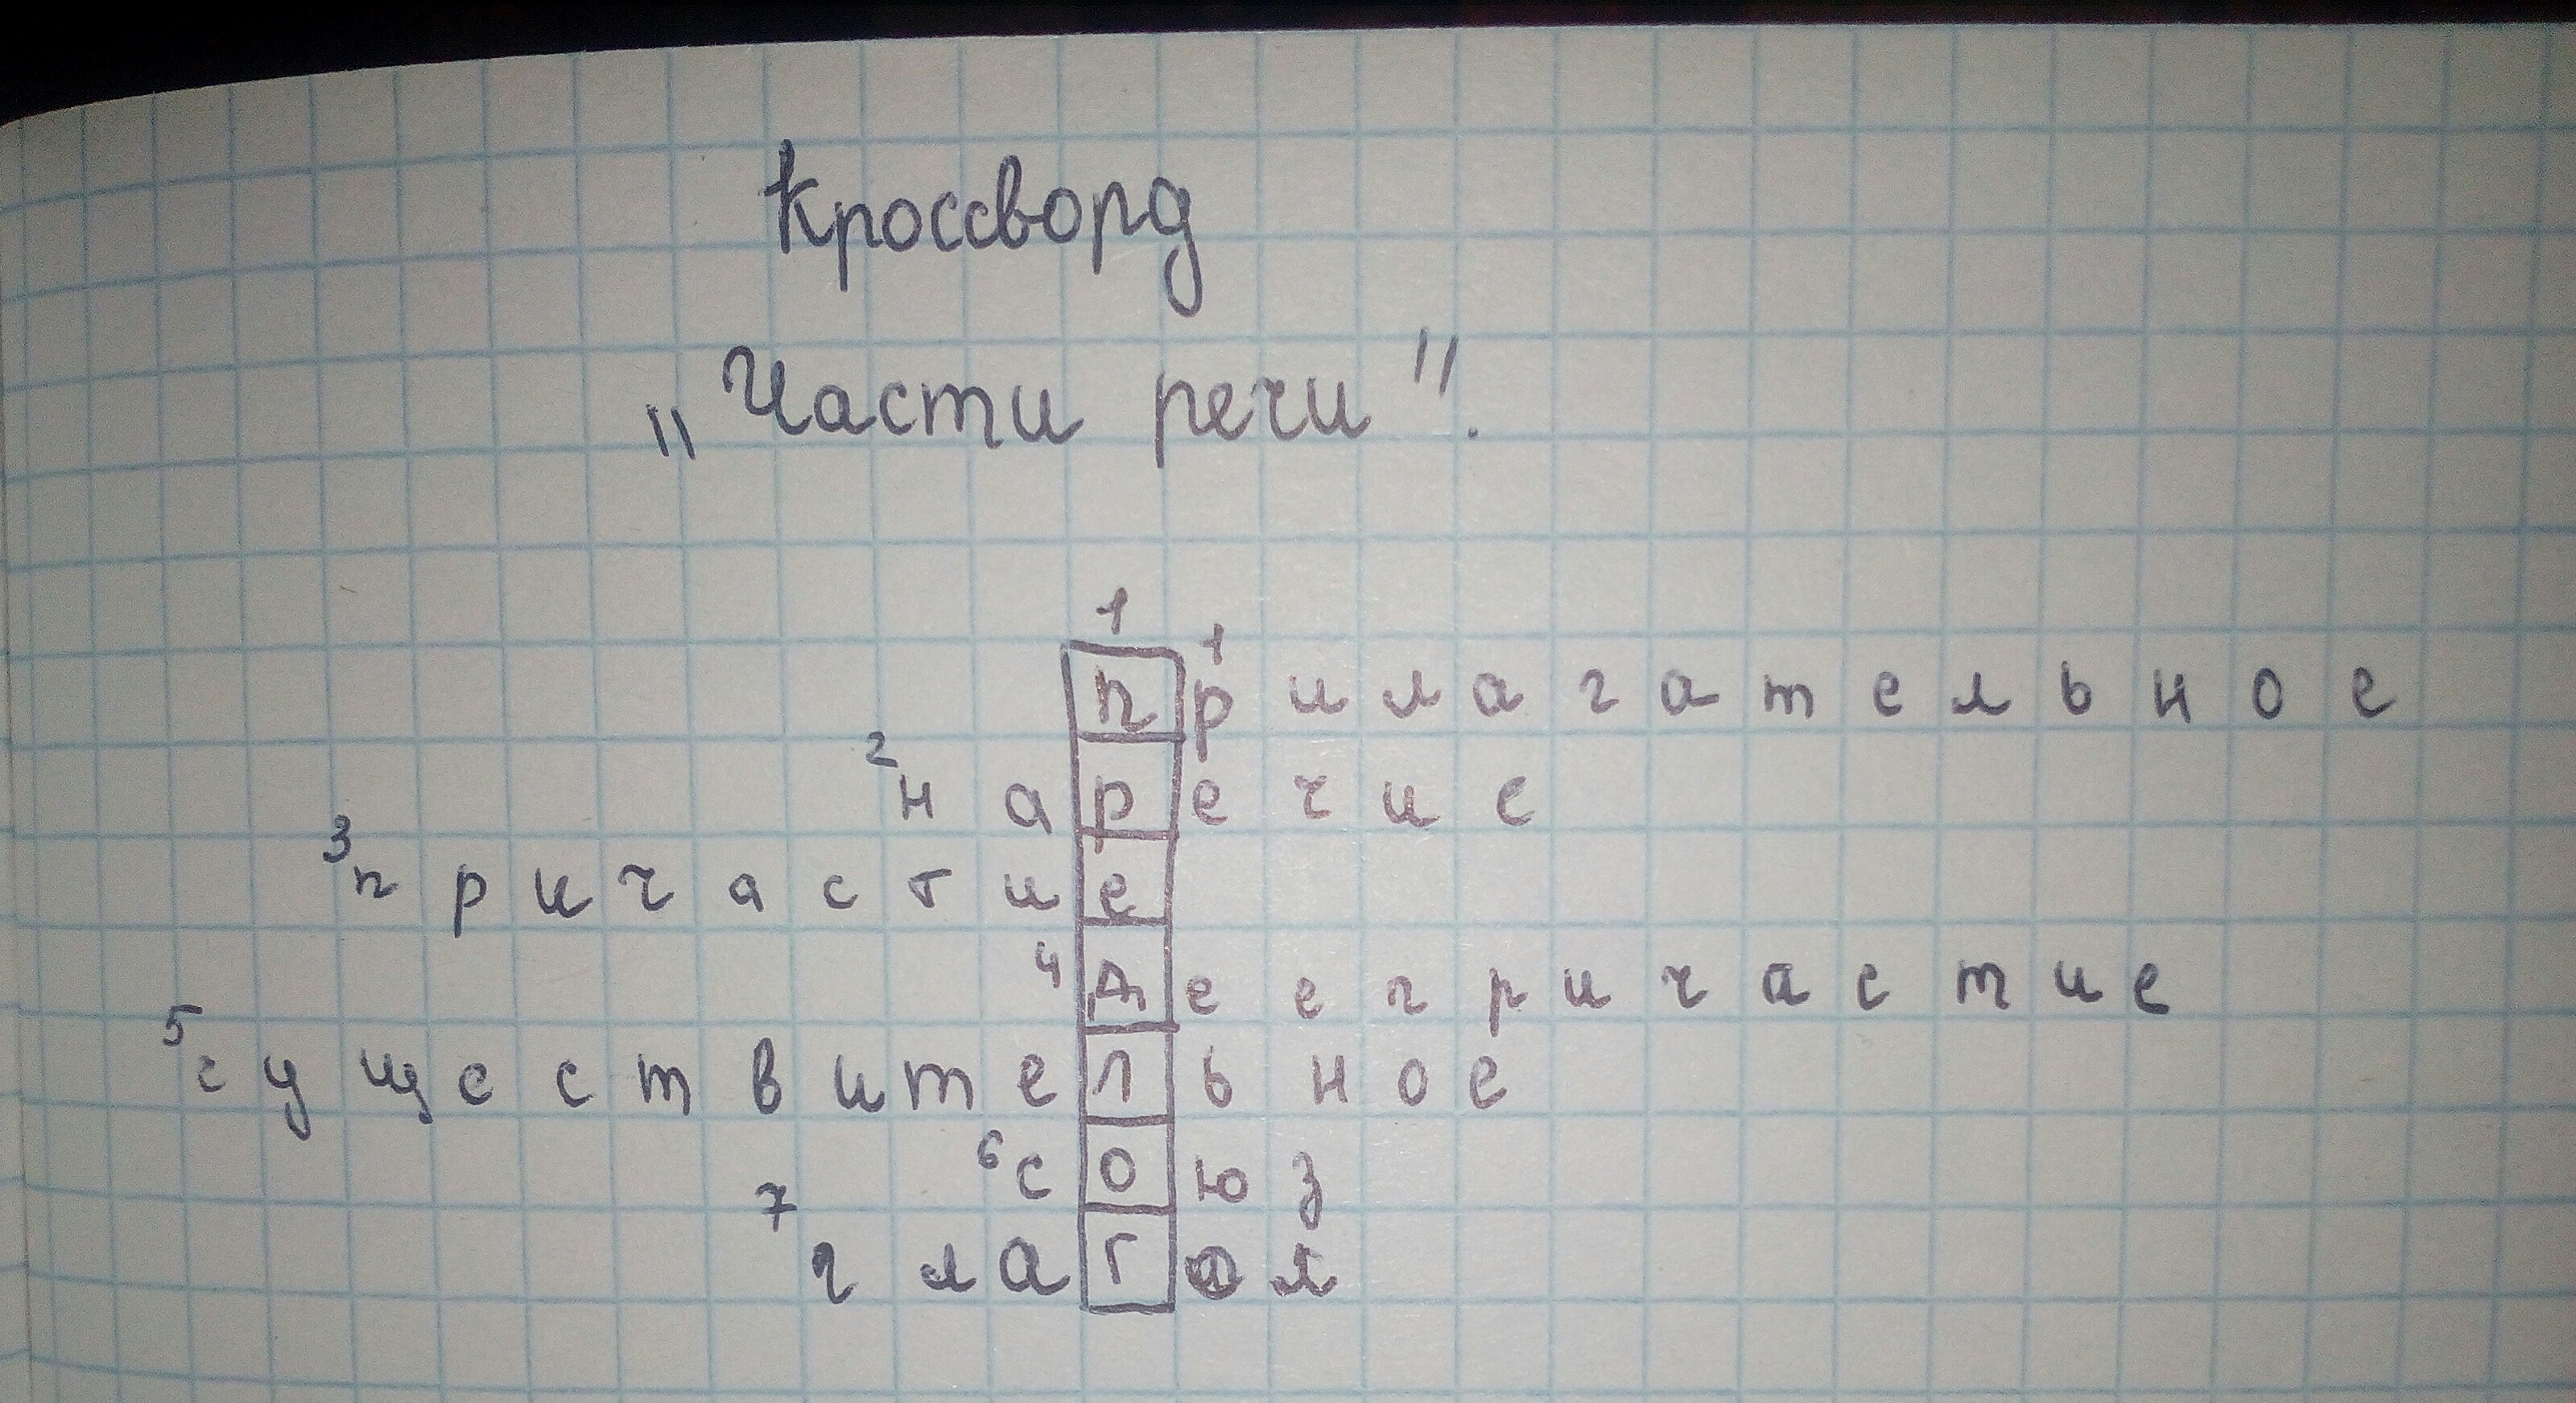 Кроссворд
„Части речи".
1
1
прилагательное
2 наречие
3 причастие
4 деепричастие
5 существительное
6 союз
7 глагол